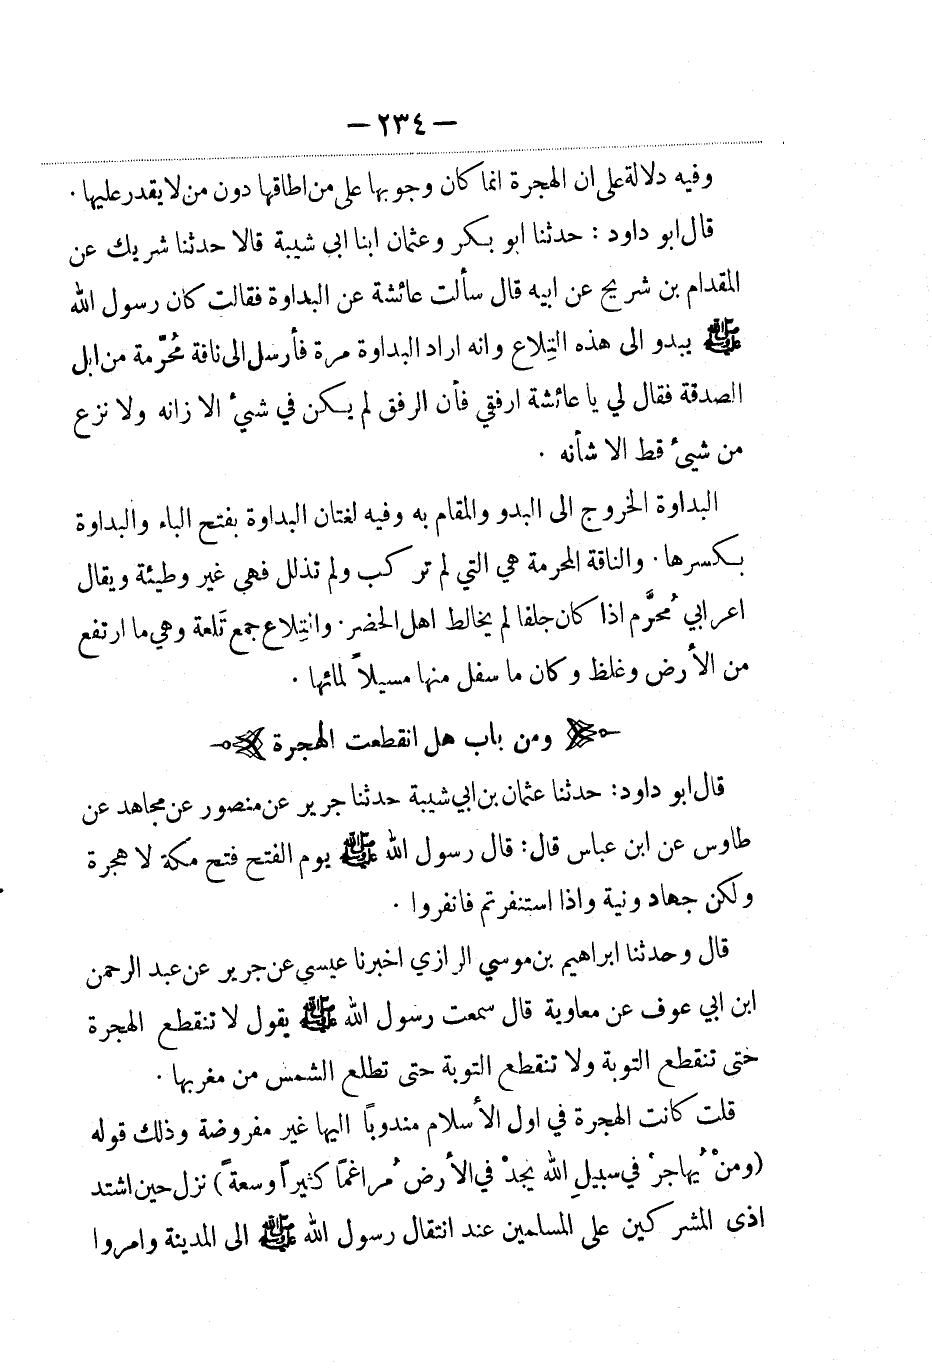 — ٢٣٤ —
وفيه دلالة على ان الهجرة انما كان وجوبها على من اطاقها دون من لا يقدر عليها .
قال ابو داود : حدثنا ابو بكر وعثمان ابنا ابي شيبة قالا حدثنا شريك عن
المقدام بن شريح عن ابيه قال سألت عائشة عن البداوة فقالت كان رسول الله
ﷺ يبدو الى هذه التِلاع وانه اراد البداوة مرة فأرسل الى ناقة مُحَرّمة من ابل
الصدقة فقال لي يا عائشة ارفقي فأن الرفق لم يكن في شيءٍ الا زانه ولا نزع
من شيءٍ قط الا شأنه .
البداوة الخروج الى البدو والمقام به وفيه لغتان البداوة بفتح الباء والبداوة
بكسرها . والناقة المحرمة هي التي لم تركب ولم تذلل فهي غير وطيئة ويقال
اعرابي مُحرَّم اذا كان جلفا لم يخالط اهل الحضر . وانتِلاع جمع تَلعة وهي ما ارتفع
من الأرض وغلظ وكان ما سفل منها مسيلاً لمائها .
ومن باب هل انقطعت الهجرة
قال ابو داود : حدثنا عثمان بن ابي شيبة حدثنا جرير عن منصور عن مجاهد عن
طاوس عن ابن عباس قال : قال رسول الله ﷺ يوم الفتح فتح مكة لا هجرة
ولكن جهاد ونية واذا استنفرتم فانفروا .
قال وحدثنا ابراهيم بن موسي الرازي اخبرنا عيسي عن جرير عن عبد الرحمن
ابن ابي عوف عن معاوية قال سمعت رسول الله ﷺ يقول لا تنقطع الهجرة
حتى تنقطع التوبة ولا تنقطع التوبة حتى تطلع الشمس من مغربها .
قلت كانت الهجرة في اول الأسلام مندوبًا اليها غير مفروضة وذلك قوله
(ومنْ يُهاجرْ في سبيلِ الله يجدْ في الأرض مُراغمًا كثيراً وسعةً) نزل حين اشتد
اذى المشركين على المسلمين عند انتقال رسول الله ﷺ الى المدينة وامروا